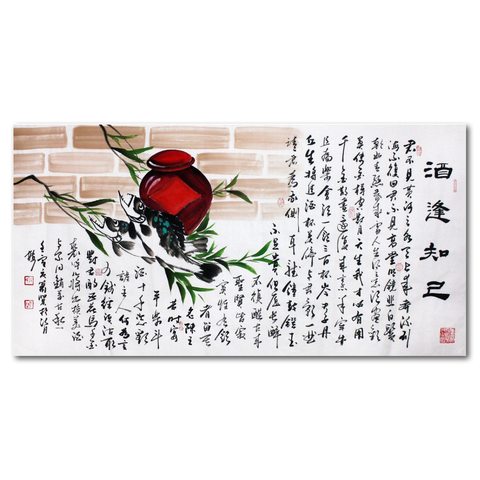 酒逢知己
君不見黃河之水天上來奔流到
海不復回君不見高堂明鏡悲白髮
朝如青絲暮成雪人生得意須盡歡
莫使金樽空對月天生我材必有用
千金散盡還復來烹羊宰牛
且為樂會須一飲三百杯岑夫子丹
丘生將進酒杯莫停與君歌一曲
請君為我側
耳聽鐘鼓饌玉
不足貴但願長醉
不願醒古來
聖賢皆寂
寞惟有飲
者留其
名陳王
昔時宴
平樂斗
酒十千恣歡
謔主人何為言
少錢徑須沽取
對君酌五花馬千金
裘呼兒將出換美酒
與爾同銷萬古愁